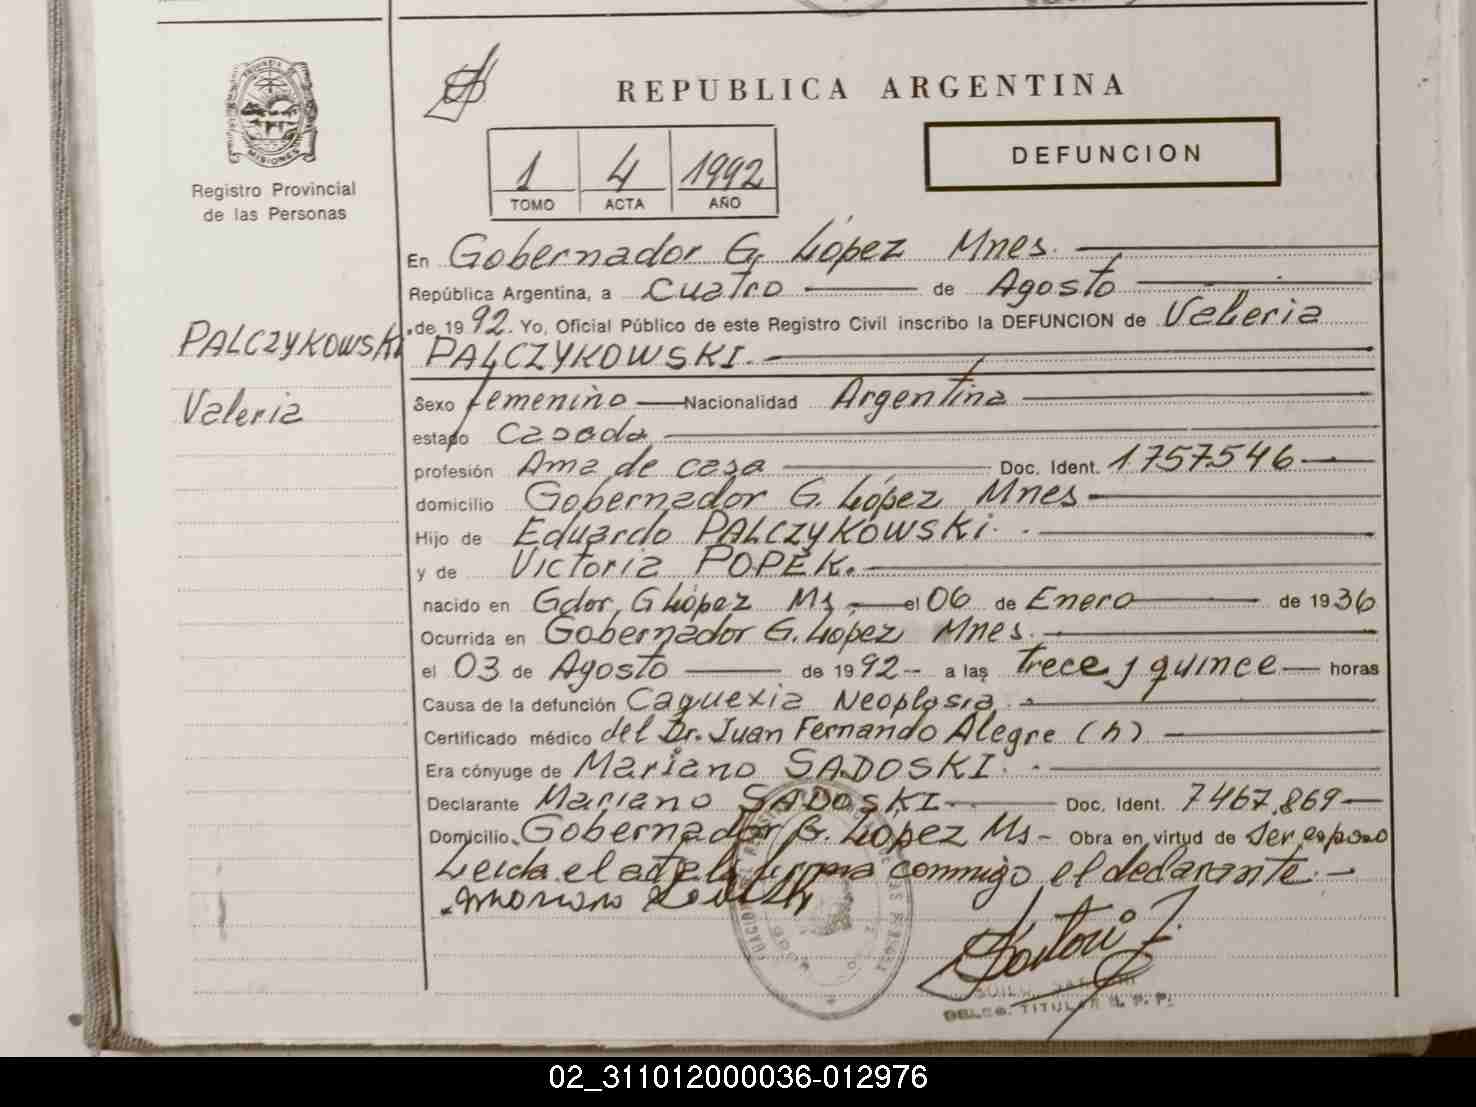 REPUBLICA ARGENTINA
DEFUNCION
MISIONES
Registro Provincial
de las Personas
1 4 1992
TOMO ACTA AÑO
En Gobernador G. López Mnes.
República Argentina, a Cuatro de Agosto
de 1992. Yo, Oficial Público de este Registro Civil inscribo la DEFUNCION de Valeria
PALCZYKOWSKI.
PALCZYKOWSKI
Valeria
Sexo femenino Nacionalidad Argentina
estado Casada
profesión Ama de casa Doc. Ident. 1757546
domicilio Gobernador G. López Mnes
Hijo de Eduardo PALCZYKOWSKi.
y de Victoria POPEK.
nacido en Gdor. G López Ms el 06 de Enero de 1936
Ocurrida en Gobernador G. López Mnes.
el 03 de Agosto de 1992 a las trece y quince horas
Causa de la defunción Caquexia Neoplasia
Certificado médico del Dr. Juan Fernando Alegre (h)
Era cónyuge de Mariano SADOSKI.
Declarante Mariano SADOSKI Doc. Ident. 7467.869
Domicilio Gobernador G. López Ms - Obra en virtud de Ser esposo
Leida el acta la firma conmigo el declarante.-
Mariano
DELEG. TITULAR R. P. P.
02_311012000036-012976